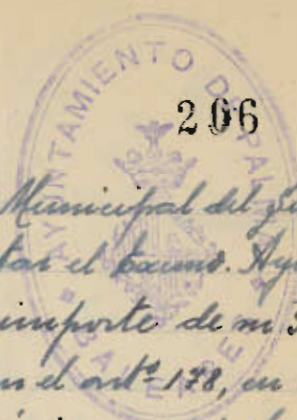 AYUNTAMIENTO DE PAL
206
Municipal del
tar el Excmo. Ay
importe de
n el artº 178, en
BALEARES